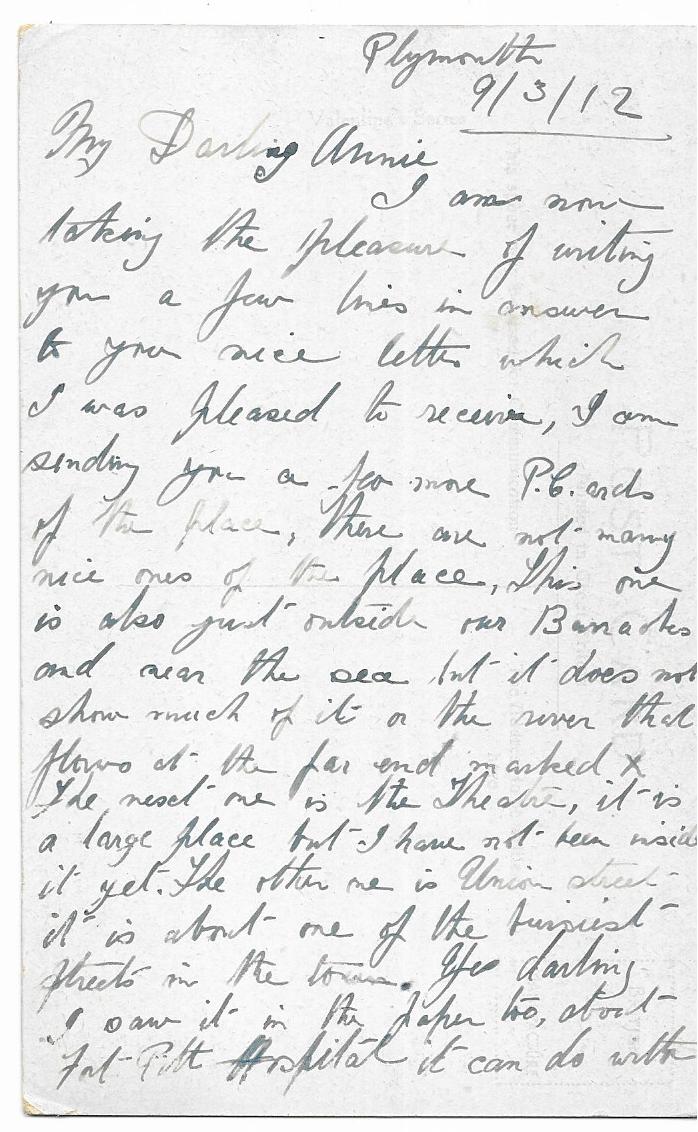 Plymouth
9/3/12
My Darling Annie
I am now
taking the pleasure of writing
you a few lines in answer
to your nice letter which
I was pleased to receive, I am
sending you a few more P.C. ards
of the place, there are not many
nice ones of the place, This one
is also just outside our Barracks
and near the sea but it does not
show much of it or the river that
flows at the far end marked X
The next one is the Theatre, it is
a large place but I have not been inside
it yet. The other one is Union street
it is about one of the busiest
streets in the town. Yes darling
I saw it in the paper too, about
Fort Pitt Hospital it can do with